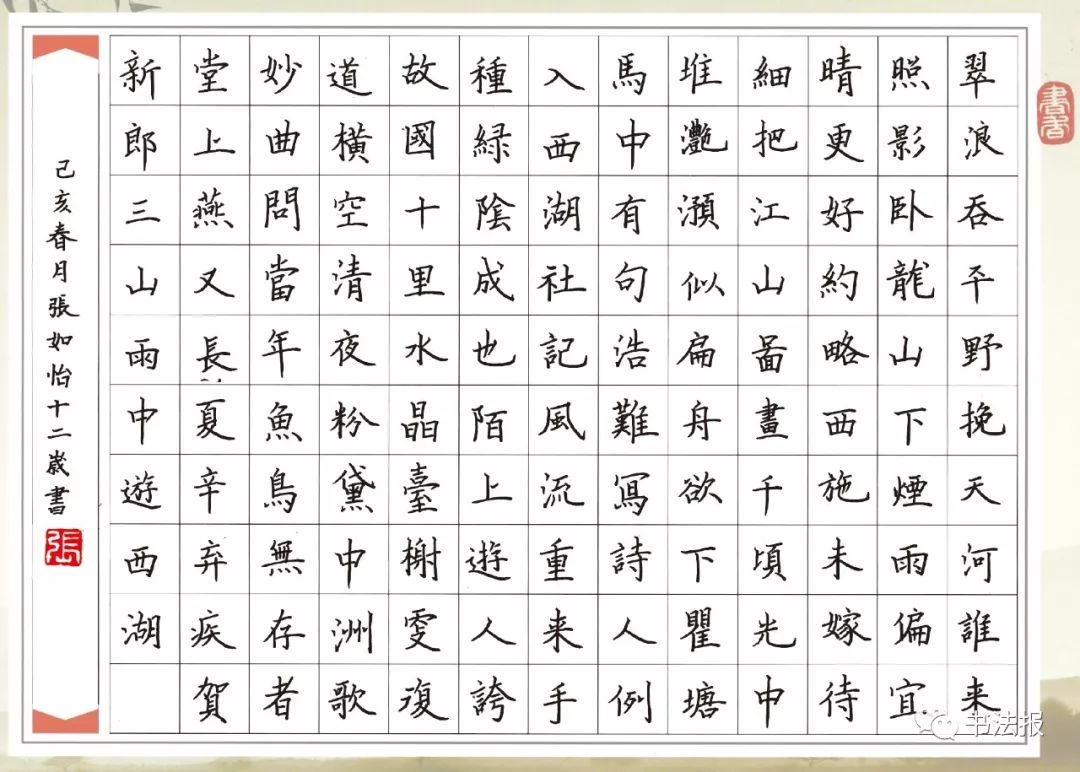 翠浪吞平野挽天河誰来
照影臥龍山下煙雨偏宜
晴更好約略西施未嫁待
細把江山畵畫千頃光中
堆灔澦似扁舟欲下瞿塘
馬中有句浩難寫詩人例
入西湖社記風流重来手
種緑陰成也陌上遊人誇
故國十里水晶臺榭雯復
道橫空清夜粉黛中洲歌
妙曲問當年魚鳥無存者
堂上燕又長夏辛弃疾賀
新郎三山雨中遊西湖
己亥春月張如怡十二嵗書
張
書者
书法报